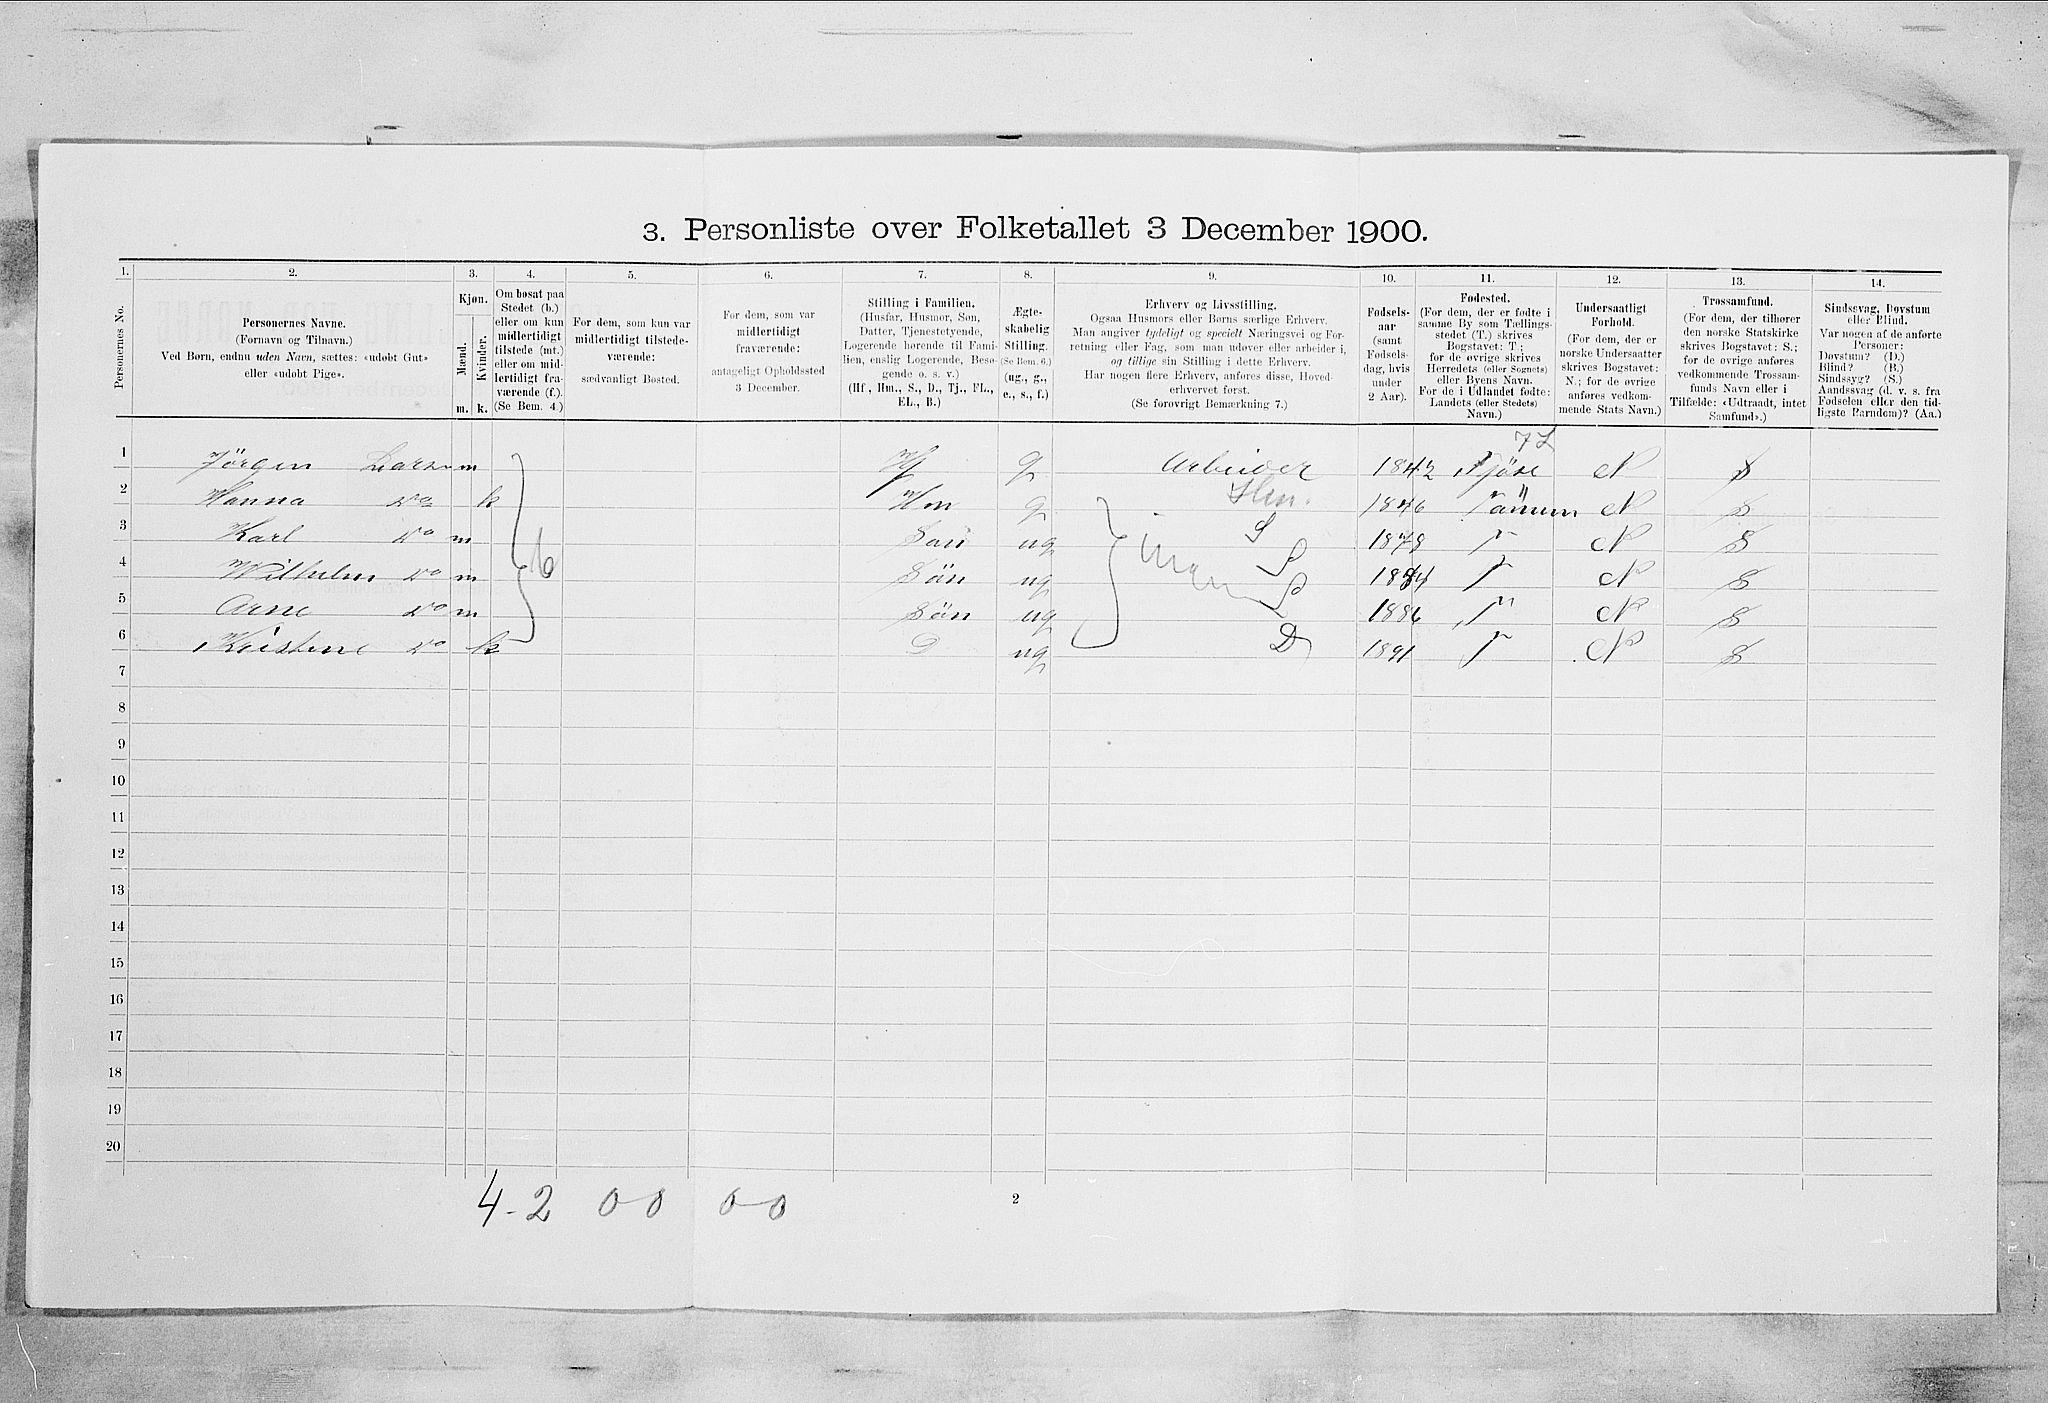 3. Personliste over Folketallet 3 December 1900.
1. 2. 3. 4. 5. 6. 7. 8. 9. 10. 11. 12. 13. 14.
Personernes No.
Personernes Navne.
(Fornavn og Tilnavn.)
Ved Børn, endnu uden Navn, sættes: «udøbt Gut»
eller «udøbt Pige».
Kjøn.
Mænd.
Kvinder.
m. k.
Om bosat paa
Stedet (b.)
eller om kun
midlertidigt
tilstede (mt.)
eller om mid-
lertidigt fra-
værende (f.).
(Se Bem. 4.)
For dem, som kun var
midlertidigt tilstede-
værende:
sædvanligt Bosted.
For dem, som var
midlertidigt
fraværende:
antageligt Opholdssted
3 December.
Stilling i Familien.
(Husfar, Husmor, Søn,
Datter, Tjenestetyende,
Logerende hørende til Fami-
lien, enslig Logerende, Besø-
gende o. s. v.)
(Hf, Hm., S., D., Tj., FL.,
EL., B.)
Ægte-
skabelig
Stilling.
(Se Bem. 6.)
(ug., g.,
e., s., f.)
Erhverv og Livsstilling.
Ogsaa Husmors eller Børns særlige Erhverv.
Man angiver tydeligt og specielt Næringsvei og For-
retning eller Fag, som man udøver eller arbeider i,
og tillige sin Stilling i dette Erhverv.
Har nogen flere Erhverv, anføres disse, Hoved-
erhvervet først.
(Se forøvrigt Bemærkning 7.)
Fødsels-
aar
(samt
Fødsels-
dag, hvis
under
2 Aar).
Fødested.
(For dem, der er fødte i
samme By som Tællings-
stedet (T.) skrives
Bogstavet: T.;
for de øvrige skrives
Herredets (eller Sognets)
eller Byens Navn.
For de i Udlandet fødte:
Landets (eller Stedets)
Navn.)
Undersaatligt
Forhold.
(For dem, der er
norske Undersaatter
skrives Bogstavet:
N.; for de øvrige
anføres vedkom-
mende Stats Navn.)
Trossamfund.
(For dem, der tilhører
den norske Statskirke
skrives Bogstavet: S.;
for de øvrige anføres
vedkommende Trossam-
funds Navn eller i
Tilfælde: «Udtraadt, intet
Samfund».)
Sindssvag, Døvstum
eller Blind.
Var nogen af de anførte
Personer:
Døvstum? (D.)
Blind? (B.)
Sindssyg? (S.)
Aandssvag (d. v. s. fra
Fødselen eller den tid-
ligste Barndom)? (Aa.)
1 Jörgen Larsen m Hf g Arbeider 1842 Tjöse N S
2 Hanna do k Hm g Hm. 1846 Tanum N S
3 Karl do m Sön ug S 1878 T N S
4 Wilhelm do m b Sön ug S 1884 T N S
5 Arne do m Sön ug S 1886 T N S
6 Kristine do k D ug D 1891 T N S
7
8
9
10
11
12
13
14
15
16
17
18
19
20
4-2 0-0 0-0
2